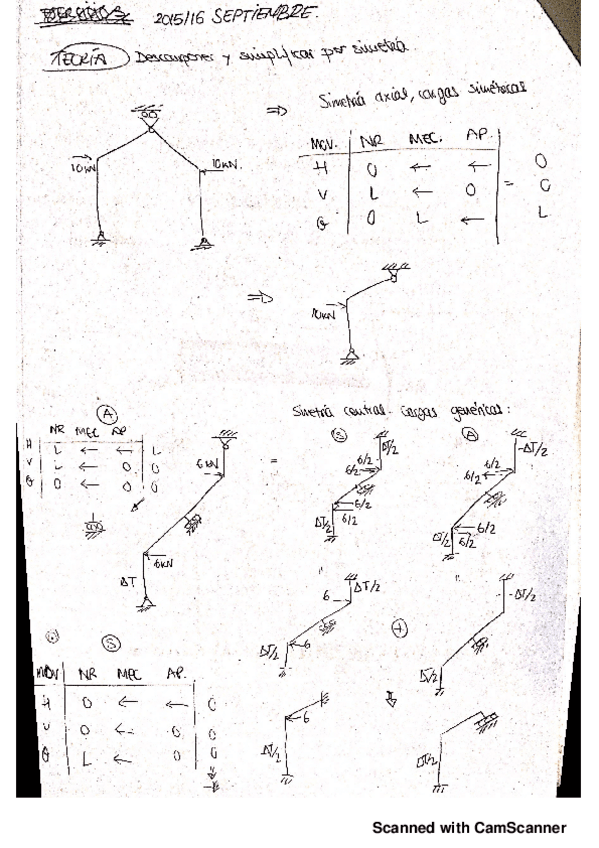 2015/16 SEPTIEMBRE.
TEORÍA Descomponer y simplificar por simetría
⇒ Simetría axial, cargas simétricas
10KN
10KN
MOV. NR MEC. AP.
H 0 ← ← 0
V L ← 0 = 0
θ 0 L ← L
⇒
10KN
A
NR MEC AP
H L ← ← L
V L ← 0 0
θ 0 ← 0 0
6KN
6KN
ΔT
=
Simetría central - Cargas genéricas:
S
ΔT/2
6/2
6/2
6/2
6/2
ΔT/2
A
-ΔT/2
6/2
6/2
6/2
6/2
ΔT/2
"
6
ΔT/2
6
ΔT/2
+
"
-ΔT/2
ΔT/2
S
MOV NR MEC AP.
H 0 ← ← 0
V 0 ← 0 0
θ L ← 0 0
6
ΔT/2
ΔT/2
Scanned with CamScanner